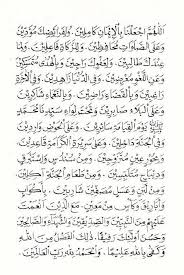 اَللّٰهُمَّ اجْعَلْنَا بِالْإِيْمَانِ كَامِلِيْنَ، وَلِلْفَرَائِضِ مُؤَدِّيْنَ
وَعَلَى الصَّلَوَاتِ مُحَافِظِيْنَ، وَلِلزَّكَاةِ فَاعِلِيْنَ، وَلِمَا
عِنْدَكَ طَالِبِيْنَ، وَلِعَفْوِكَ رَاجِيْنَ، وَبِالْهُدَى مُتَمَسِّكِيْنَ
وَعَنِ اللَّغْوِ مُعْرِضِيْنَ، وَفِى الدُّنْيَا زَاهِدِيْنَ، وَفِى الْآخِرَةِ
رَاغِبِيْنَ، وَبِالْقَضَاءِ رَاضِيْنَ، وَبِالنَّعْمَاءِ شَاكِرِيْنَ
وَعَلَى الْبَلَاءِ صَابِرِيْنَ، وَتَحْتَ لِوَاءِ سَيِّدِنَا مُحَمَّدٍ
يَوْمَ الْقِيَامَةِ سَائِرِيْنَ، وَإِلَى الْحَوْضِ وَارِدِيْنَ
وَعَلَى سَرِيْرِ الْكَرَامَةِ قَاعِدِيْنَ
وَبِحُوْرٍ عِيْنٍ مُتَزَوِّجِيْنَ، وَمِنْ سُنْدُسٍ وَإِسْتَبْرَقٍ
وَمِنْ طَعَامِ الْجَنَّةِ آكِلِيْنَ
وَمِنْ لَبَنٍ وَعَسَلٍ مُصَفًّى شَارِبِيْنَ، بِأَكْوَابٍ
وَأَبَارِيْقَ وَكَأْسٍ مِنْ مَعِيْنٍ، مَعَ الَّذِيْنَ أَنْعَمْتَ
عَلَيْهِمْ مِنَ النَّبِيِّيْنَ وَالصِّدِّيْقِيْنَ وَالشُّهَدَاءِ وَالصَّالِحِيْنَ
وَحَسُنَ أُولٰئِكَ رَفِيْقًا، ذٰلِكَ الْفَضْلُ مِنَ اللّٰهِ
وَكَفَى بِاللّٰهِ عَلِيْمًا، وَالْحَمْدُ لِلّٰهِ رَبِّ الْعَالَمِيْنَ